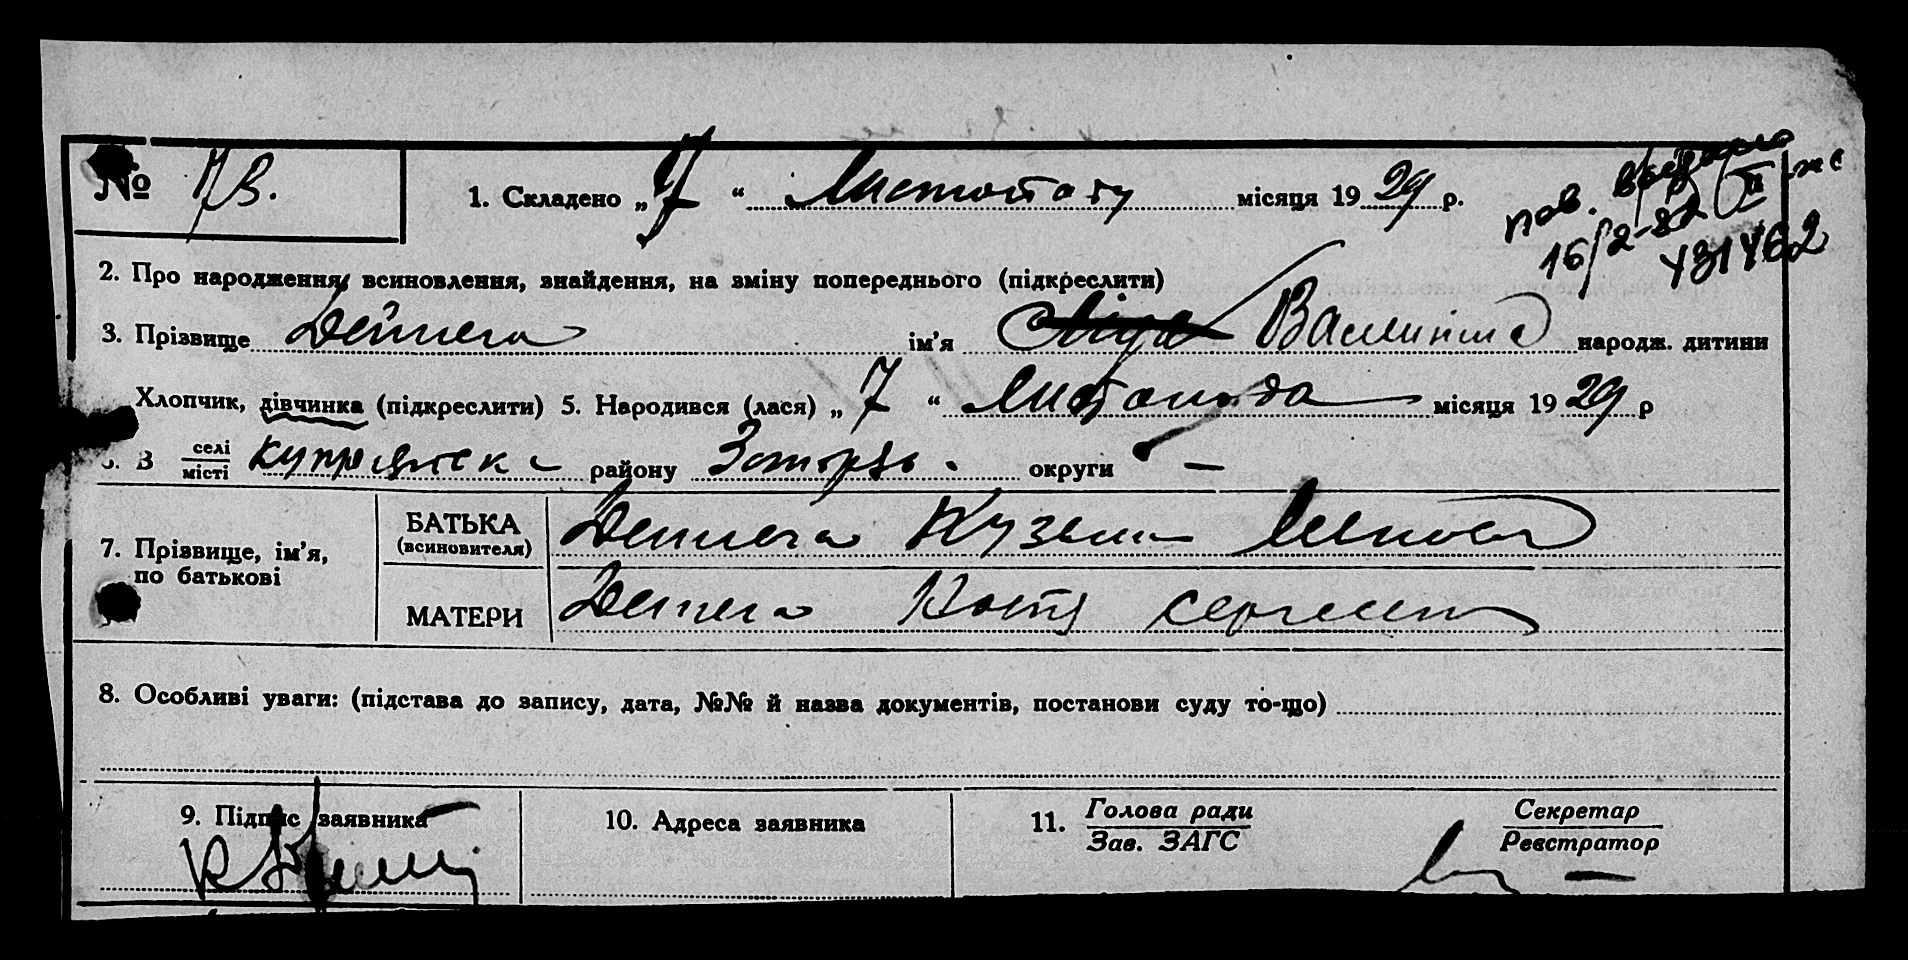 № 73.
1. Складено „7“ Листопаду місяця 1929 р.
пов. выдано
16/2-82 II-ЖС
431462
2. Про народження, всиновлення, знайдення, на зміну попереднього (підкреслити)
3. Прізвище Дейнега ім'я Валентина народж. дитини
Хлопчик, дівчинка (підкреслити) 5. Народився (лася) „7“ Листопада місяця 1929 р
6. В селі району округи –
місті
7. Прізвище, ім'я, по батькові
БАТЬКА (всиновителя) Дейнега Кузьма
МАТЕРИ Дейнега Настя Сергеевн
8. Особливі уваги: (підстава до запису, дата, №№ й назва документів, постанови суду то-що)
9. Підпис заявника 10. Адреса заявника 11. Голова ради Секретар
Зав. ЗАГС Реєстратор